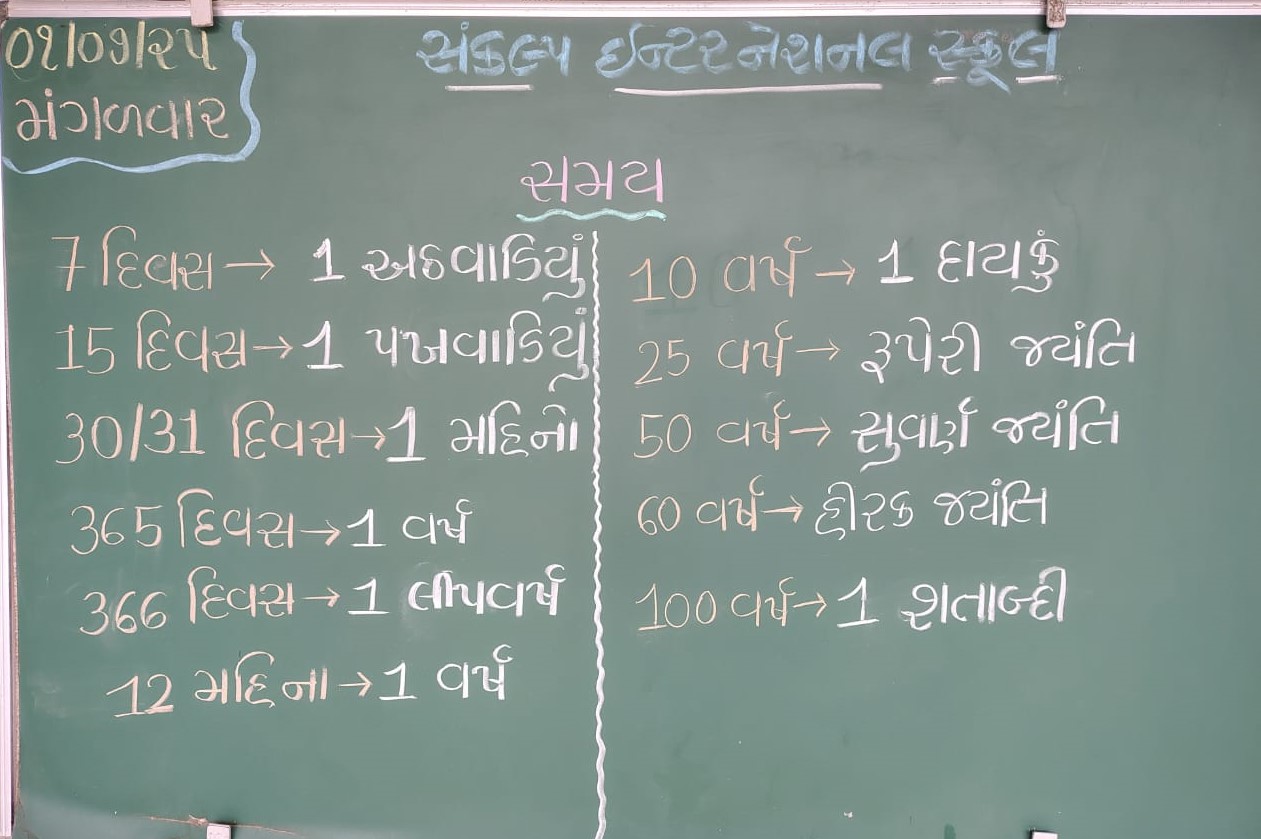 ૦૧/૦૭/૨૫
મંગળવાર
સંકલ્પ ઈન્ટરનેશનલ સ્કૂલ
સમય
7 દિવસ → 1 અઠવાડિયું
15 દિવસ → 1 પખવાડિયું
30/31 દિવસ → 1 મહિનો
365 દિવસ → 1 વર્ષ
366 દિવસ → 1 લીપવર્ષ
12 મહિના → 1 વર્ષ
10 વર્ષ → 1 દાયકું
25 વર્ષ → રૂપેરી જયંતિ
50 વર્ષ → સુવર્ણ જયંતિ
60 વર્ષ → હીરક જયંતિ
100 વર્ષ → 1 શતાબ્દી